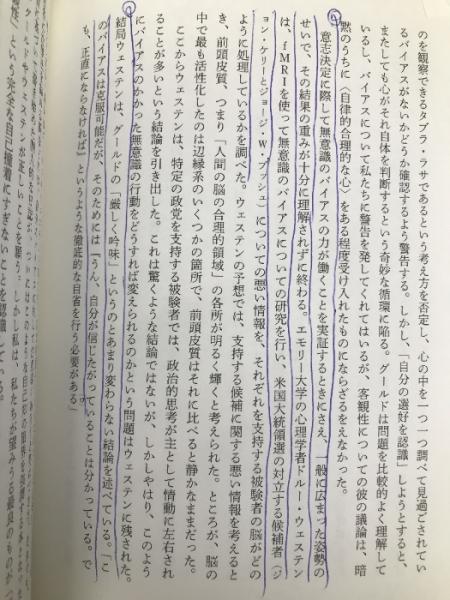 のを観察できるタブラ・ラサであるという考え方を否定し、心の中を一つ一つ調べて見過ごされてい
るバイアスがないかどうか確認するよう警告する。しかし、「自分の選好を認識」しようとすると、
またしても心がそれ自体を判断するという奇妙な循環に陥る。グールドは問題を比較的よく理解して
いるし、バイアスについて私たちに警告を発してくれてはいるが、客観性についての彼の議論は、暗
黙のうちに〈自律的合理的な心〉をある程度受け入れたものにならざるをえなかった。
意志決定に際して無意識のバイアスの力が働くことを実証するときにさえ、一般に広まった姿勢の
せいで、その結果の重みが十分に理解されずに終わる。エモリー大学の心理学者ドルー・ウェステン
は、fMRIを使って無意識のバイアスについての研究を行い、米国大統領選の対立する候補者（ジ
ョン・ケリーとジョージ・W・ブッシュ）についての悪い情報を、それぞれを支持する被験者の脳がどの
ように処理しているかを調べた。ウェステンの予想では、支持する候補に関する悪い情報を考えると
き、前頭皮質、つまり「人間の脳の合理的領域」の各所が明るく輝くと考えられた。ところが、脳の
中で最も活性化したのは辺縁系のいくつかの箇所で、前頭皮質はそれに比べると静かなままだった。
ここからウェステンは、特定の政党を支持する被験者では、政治的思考が主として情動に左右され
ることが多いという結論を引き出した。これは驚くような結論ではないが、しかしやはり、このよう
にバイアスのかかった無意識の行動をどうすれば変えられるのかという問題はウェステンに残された。
結局ウェステンは、グールドの「厳しく吟味」というのとあまり変わらない結論を述べている。「こ
のバイアスは克服可能だが、そのためには『うん、自分が信じたがっていることは分かっている。で
も、正直にならなければ』というような徹底的な自省を行う必要がある」